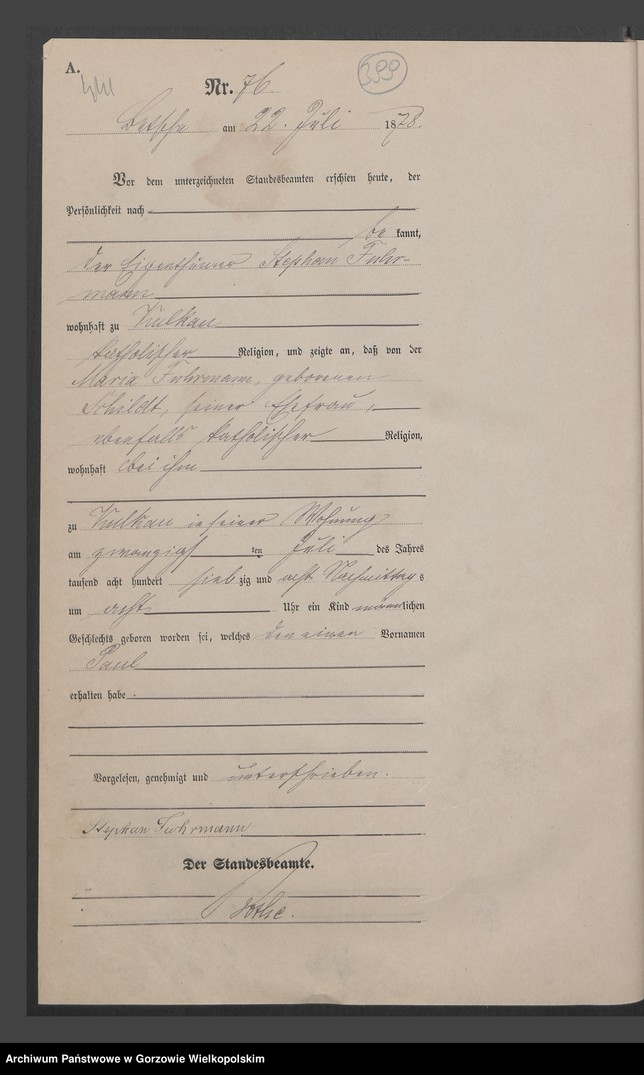 A.
399
Nr. 76
Betsche am 22. Juli 1878.
Vor dem unterzeichneten Standesbeamten erschien heute, der
Persönlichkeit nach
be kannt,
der Eigenthümer Stephan Fuhr-
mann
wohnhaft zu Kulkau
katholischer Religion, und zeigte an, daß von der
Maria Fuhrmann, geborenen
Schildt, seiner Ehefrau,
ebenfalls katholischer Religion,
wohnhaft bei ihm
zu Kulkau in seiner Wohnung
am zwanzigs ten Juli des Jahres
tausend acht hundert sieb zig und acht Nachmittag s
um acht Uhr ein Kind männ lichen
Geschlechts geboren worden sei, welches den einen Vornamen
Paul
erhalten habe.
Vorgelesen, genehmigt und unterschrieben.
Stephan Fuhrmann
Der Standesbeamte.
Archiwum Państwowe w Gorzowie Wielkopolskim